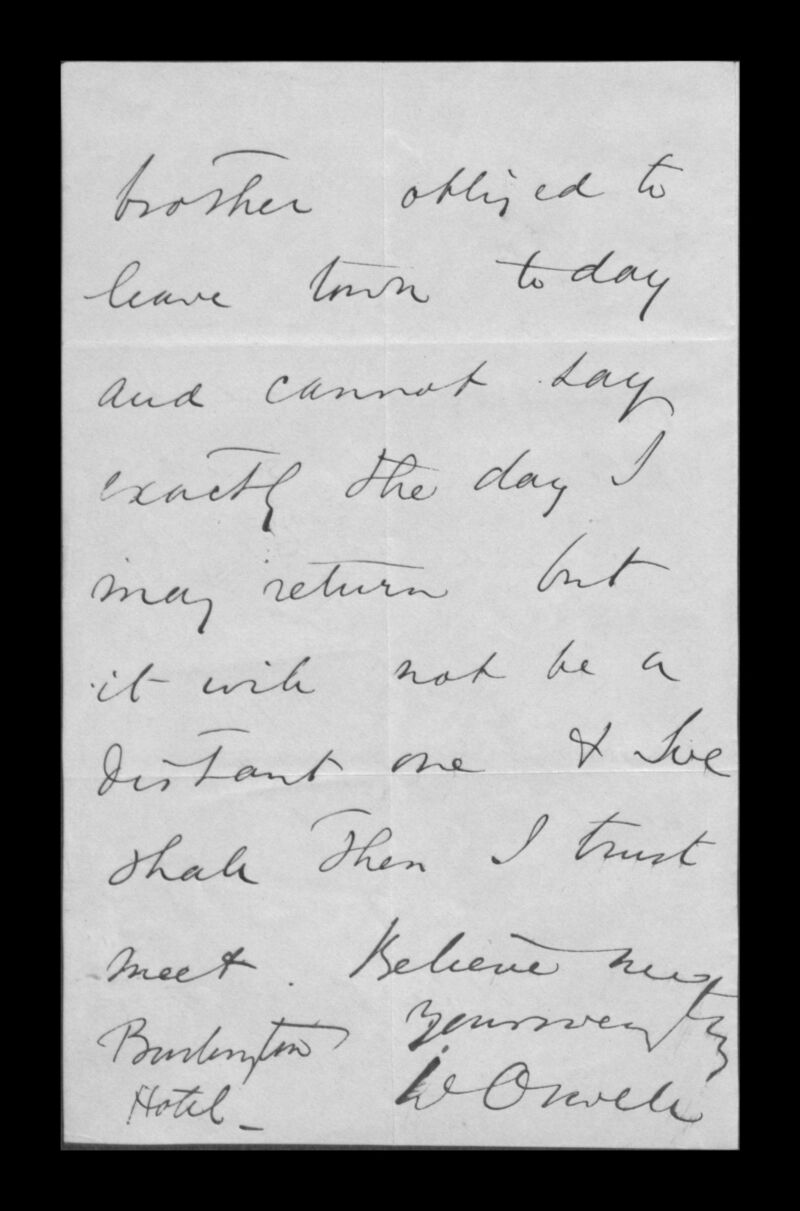 brother obliged to
leave town today
and cannot say
exactly the day I
may return but
it will not be a
distant one & we
shall then I trust
meet. Believe me
yours very try
Burlington
Hotel _
W Orwell